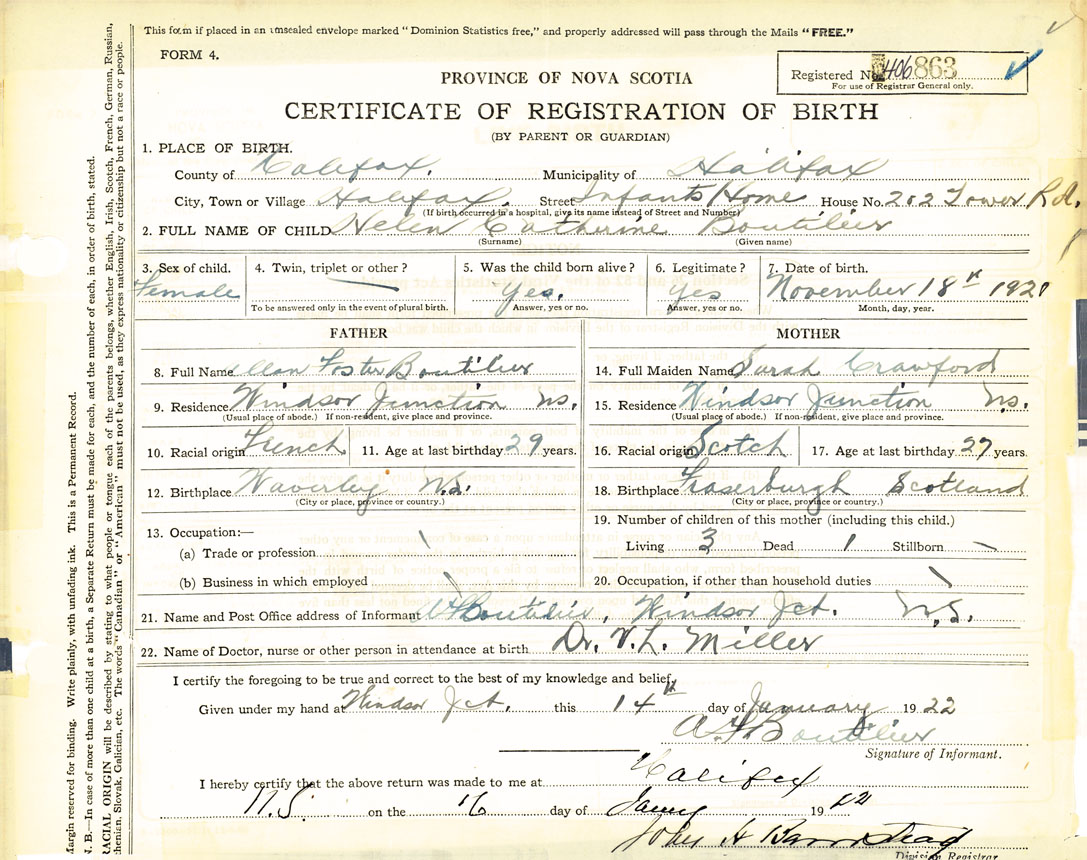 This form if placed in an unsealed envelope marked "Dominion Statistics free," and properly addressed will pass through the Mails "FREE."
FORM 4.
PROVINCE OF NOVA SCOTIA
Registered No. 406 863
For use of Registrar General only.
CERTIFICATE OF REGISTRATION OF BIRTH
(BY PARENT OR GUARDIAN)
1. PLACE OF BIRTH.
County of Halifax. Municipality of Halifax
City, Town or Village Halifax. Street Infants Home House No. 202 Tower Rd.
(If birth occurred in a hospital, give its name instead of Street and Number)
2. FULL NAME OF CHILD Helen Catherine Boutilier
(Surname) (Given name)
3. Sex of child. 4. Twin, triplet or other? 5. Was the child born alive? 6. Legitimate? 7. Date of birth.
Female — Yes. Yes November 18th 1921
To be answered only in the event of plural birth. Answer, yes or no. Answer, yes or no. Month, day, year.
FATHER
8. Full Name Allan Foster Boutilier
9. Residence Windsor Junction N.S.
(Usual place of abode.) If non-resident, give place and province.
10. Racial origin French 11. Age at last birthday 29 years.
12. Birthplace Waverley N.S.
(City or place, province or country.)
13. Occupation:—
(a) Trade or profession
(b) Business in which employed
MOTHER
14. Full Maiden Name Sarah Crawford
15. Residence Windsor Junction N.S.
(Usual place of abode.) If non-resident, give place and province.
16. Racial origin Scotch 17. Age at last birthday 27 years.
18. Birthplace Fraserburgh Scotland
(City or place, province or country.)
19. Number of children of this mother (including this child.)
Living 3 Dead 1 Stillborn —
20. Occupation, if other than household duties
21. Name and Post Office address of Informant A F Boutilier, Windsor Jct. N.S.
22. Name of Doctor, nurse or other person in attendance at birth Dr. V. L. Miller
I certify the foregoing to be true and correct to the best of my knowledge and belief,
Given under my hand at Windsor Jct. this 14th day of January 1922
A. F. Boutilier
Signature of Informant.
I hereby certify that the above return was made to me at Halifax
N.S. on the 16 day of Jany 1922
John H Barnstead
Division Registrar
Margin reserved for binding. Write plainly, with unfading ink. This is a Permanent Record.
N. B.—In case of more than one child at a birth, a Separate Return must be made for each, and the number of each, in order of birth, stated.
RACIAL ORIGIN will be described by stating to what people or tongue each of the parents belongs, whether English, Irish, Scotch, French, German, Russian,
thenian, Slovak, Galician, etc. The words "Canadian" or "American" must not be used, as they express nationality or citizenship but not a race or people.